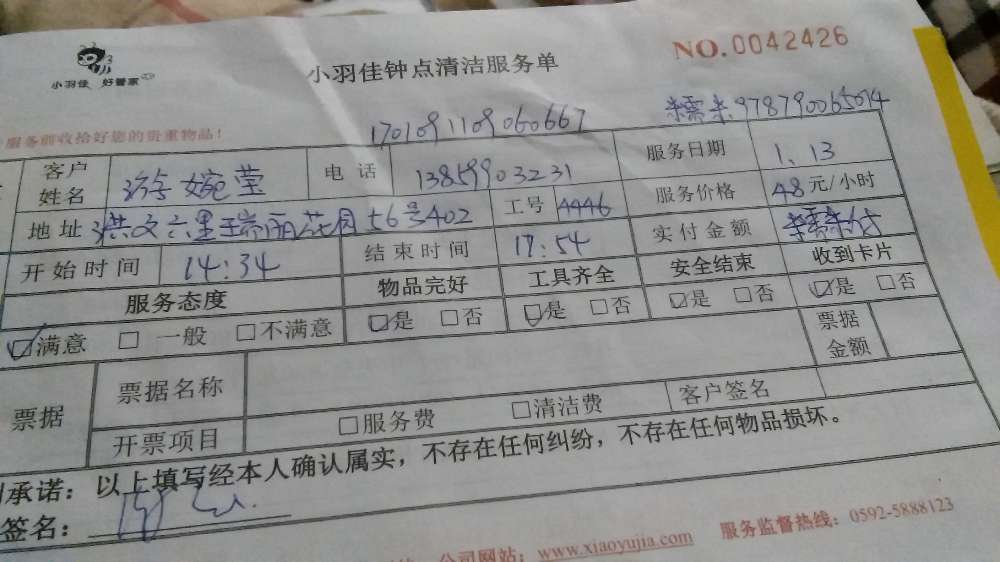 小羽佳 好管家
小羽佳钟点清洁服务单
NO.0042426
服务前收拾好您的贵重物品!
1701091109060667
糯米978790065014
客户姓名 游婉莹 电话 13859903231 服务日期 1.13
地址 洪文六里瑞丽花园56号402 工号 4446 服务价格 48元/小时
开始时间 14:34 结束时间 17:54 实付金额 糯米付
服务态度 物品完好 工具齐全 安全结束 收到卡片
☑满意 □一般 □不满意 ☑是 □否 ☑是 □否 ☑是 □否 ☑是 □否
票据 票据名称 票据金额
开票项目 □服务费 □清洁费 客户签名
承诺：以上填写经本人确认属实，不存在任何纠纷，不存在任何物品损坏。
签名：
公司网站：www.xiaoyujia.com 服务监督热线：0592-5888123